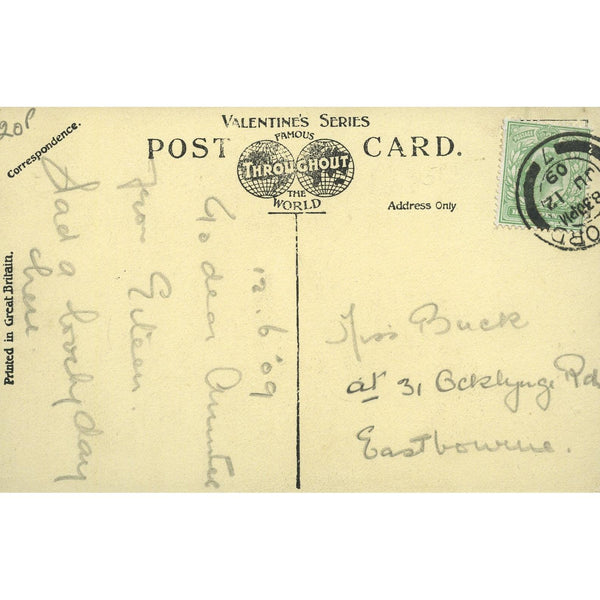 20P
Correspondence.
VALENTINE'S SERIES
FAMOUS
THROUGHOUT
THE
WORLD
POST CARD.
Address Only
Printed in Great Britain.
12.6.'09
To dear Auntee
from Eileen.
Had a lovely day
here
Miss Buck
at 31, Ocklynge Rd
Eastbourne.
8.30PM
JU 12
09
ORD